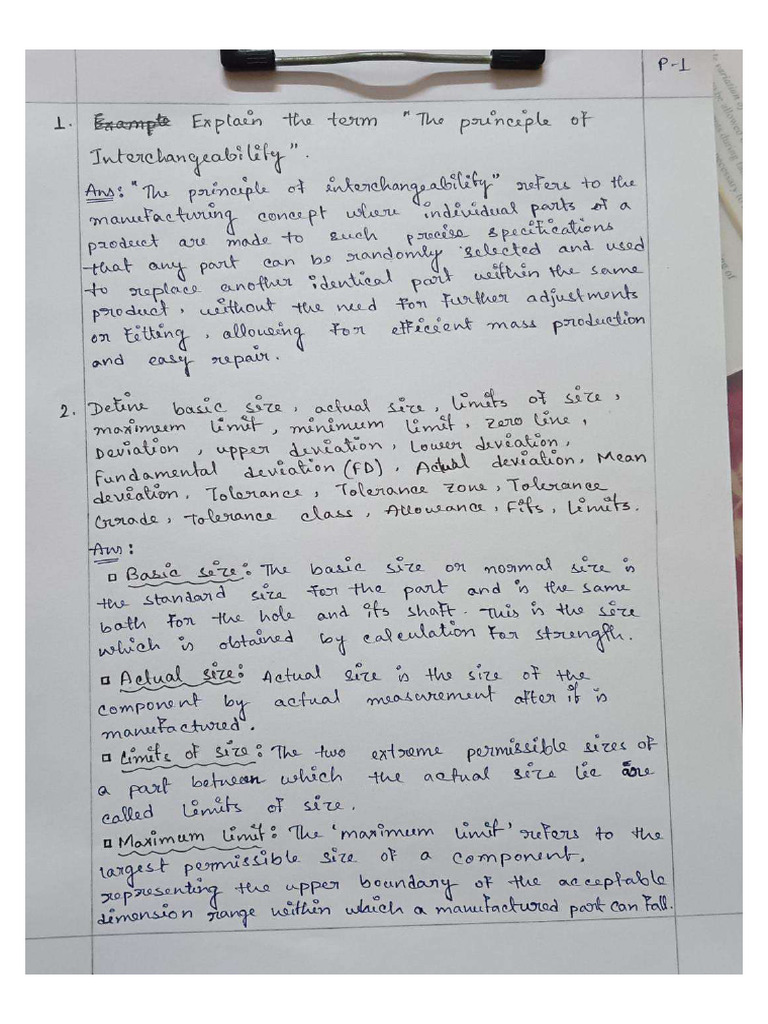 P-1
1. Explain the term "The principle of
Interchangeability".
Ans: "The principle of interchangeability" refers to the
manufacturing concept where individual parts of a
product are made to such precise specifications
that any part can be randomly selected and used
to replace another identical part within the same
product, without the need for further adjustments
or fitting, allowing for efficient mass production
and easy repair.
2. Define basic size, actual size, limits of size,
maximum limit, minimum limit, zero line,
Deviation, upper deviation, Lower deviation,
Fundamental deviation (FD), Actual deviation, Mean
deviation, Tolerance, Tolerance zone, Tolerance
Grade, Tolerance class, Allowance, Fits, Limits.
Ans:
Basic size: The basic size or normal size is
the standard size for the part and is the same
both for the hole and its shaft. This is the size
which is obtained by calculation for strength.
Actual size: Actual size is the size of the
component by actual measurement after it is
manufactured.
Limits of size: The two extreme permissible sizes of
a part between which the actual size lie are
called Limits of size.
Maximum limit: The 'maximum limit' refers to the
largest permissible size of a component.
representing the upper boundary of the acceptable
dimension range within which a manufactured part can fall.